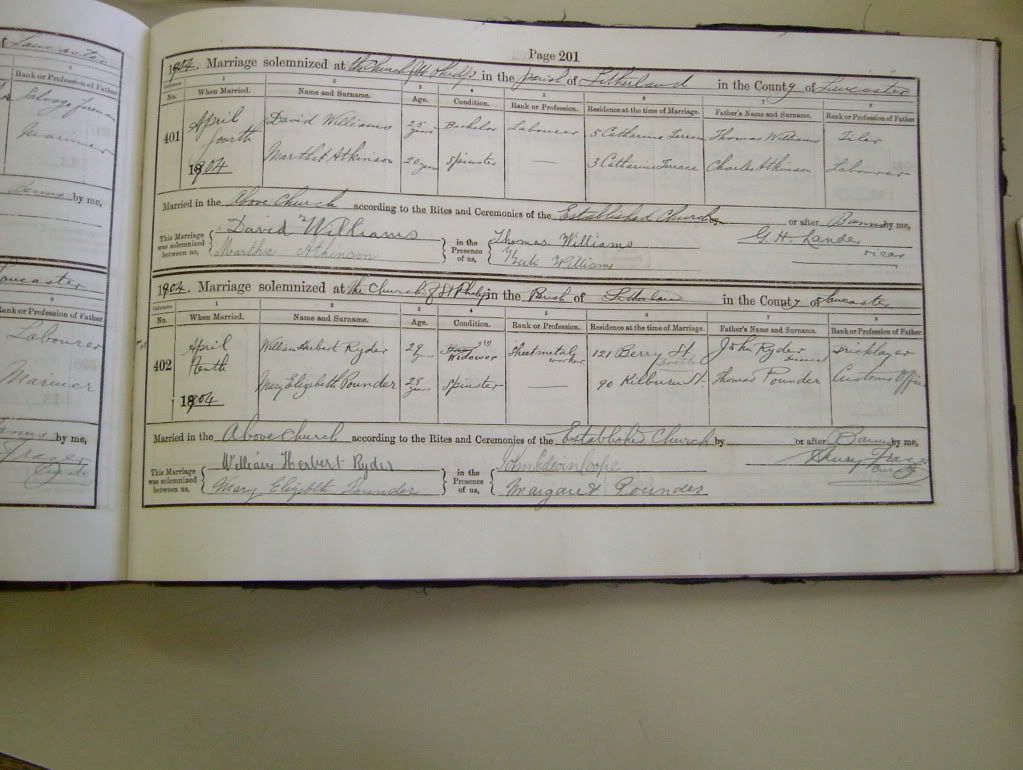 Lancaster
8
Rank or Profession of Father
Salvage foreman
Mariner
Banns by me,
Lancaster
8
Rank or Profession of Father
Labourer
Mariner
Banns by me,
Page 201
1904. Marriage solemnized at the Church of St Philip in the Parish of Litherland in the County of Lancaster
Columns 1 2 3 4 5 6 7 8
No. When Married. Name and Surname. Age. Condition. Rank or Profession. Residence at the time of Marriage. Father's Name and Surname. Rank or Profession of Father
401 April fourth 1904 David Williams 25 years Bachelor Labourer 5 Catharine Terrace Thomas Williams Tiler
Martha Atkinson 20 years Spinster — 3 Catharine Terrace Charles Atkinson Labourer
Married in the Above Church according to the Rites and Ceremonies of the Established Church or after Banns by me,
This Marriage was solemnized between us, David Williams in the Presence of us, Thomas Williams G. H. Lander
Martha Atkinson Williams Vicar
1904. Marriage solemnized at the Church of St Philip in the Parish of Litherland in the County of Lancaster
Columns 1 2 3 4 5 6 7 8
No. When Married. Name and Surname. Age. Condition. Rank or Profession. Residence at the time of Marriage. Father's Name and Surname. Rank or Profession of Father
402 April tenth 1904 William Herbert Ryder 29 years Widower Sheetmetal worker 121 Berry St Bootle John Ryder Deceased Bricklayer
Mary Elizabeth Pounder 28 years Spinster — 90 Kilburn St. Thomas Pounder Customs Officer
Married in the Above Church according to the Rites and Ceremonies of the Established Church by — or after Banns by me,
This Marriage was solemnized between us, William Herbert Ryder in the Presence of us, John Edwin Henry
Mary Elizabeth Pounder Margaret Pounder Curate